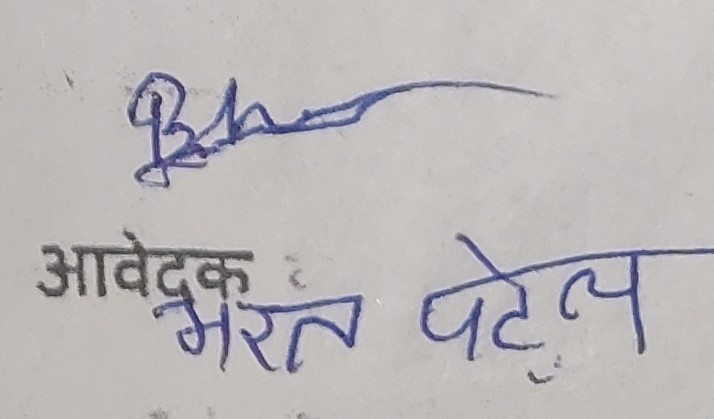 आवेदक
भरत पटेल